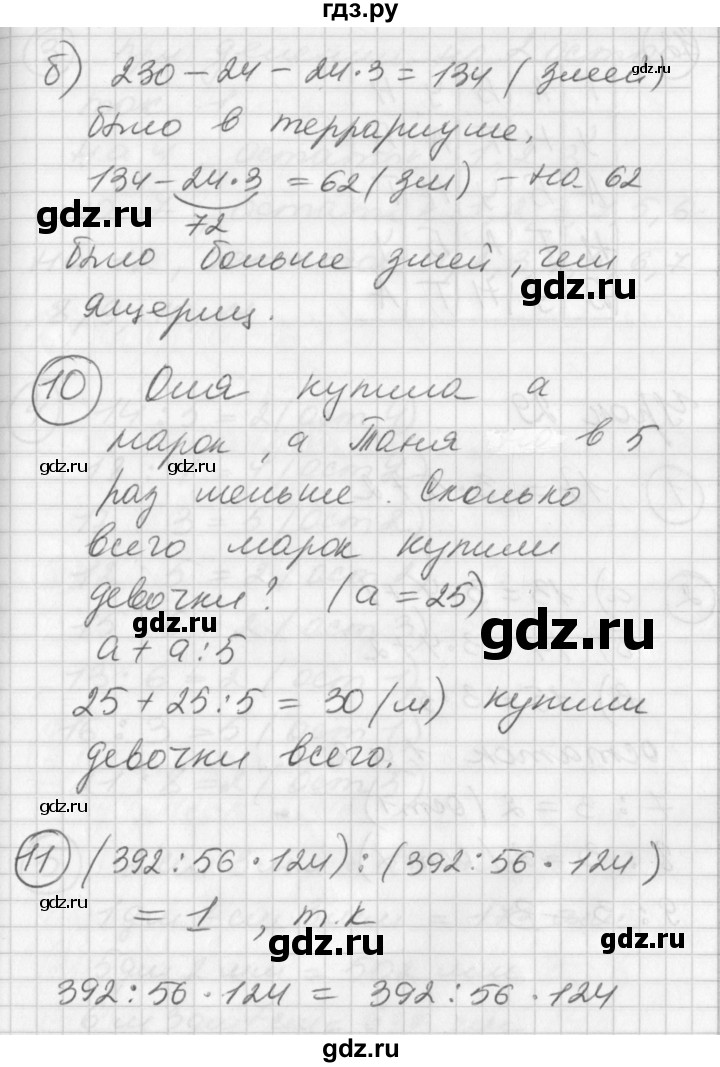 гдз.ру
б) 230 - 24 - 24·3 = 134 (змей)
gdz.ru
gdz.ru
было в террариуме.
gdz.ru
134 - 24·3 = 62 (зм) - на 62
gdz.ru
72
было больше змей, чем
gdz.ru
ящериц.
10 Оля купила а
марок, а Таня в 5
gdz.ru
gdz.ru
раз меньше. Сколько
всего марок купили
девочки? (а = 25)
gdz.ru
gdz.ru
а + а : 5
25 + 25 : 5 = 30 (м) купили
девочки всего.
gdz.ru
gdz.ru
11 (392 : 56 · 124) : (392 : 56 · 124)
gdz.ru
= 1, т.к
gdz.ru
gdz.ru
392 : 56 · 124 = 392 : 56 · 124
gdz.ru